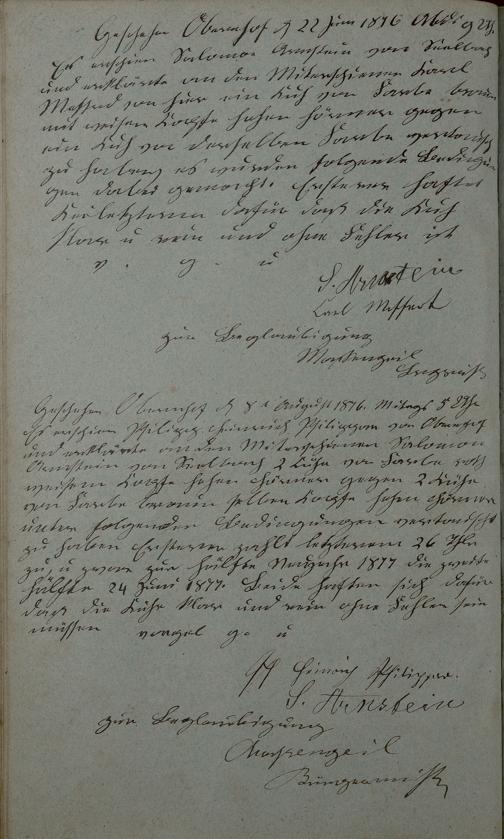 Geschehn Obernhof d 22 Juni 1876
Es erschien Salomon Arnstein von Seelbach
und erklärte an den Miterschienen Karl
Meffert von hier ein Kuh von Farbe braun
mit weisem Kopfe hohen Hörner gegen
ein Kuh von derselben Farbe vertauscht
zu haben es wurden folgende Bedingun
gen dabei gemacht. Ersterer haftet
letzterem dafür das die Kuh
klar u rein und ohne Fehler ist
v. g. u
S. Arnstein
Carl Meffert
zur Beglaubigung
Geschehen Obernhof d 8 t August 1876. Mitags 5 Uhr
Es erschien Philipp Heinrich Philippar von Obernhof
und erklärte an den Miterschienen Salomon
Arnstein von Seelbach 2 Kühe von Farbe roth
weisem Kopfe hohen Hörner gegen 2 Kühe
von Farbe braun selben Kopfe hohen Hörner
unter folgenden Bedingungen vertauscht
zu haben Ersterer zahlt letzterem 26 Thlr
zu, u zwar zur Hälfte Neujahr 1877 die zweite
Hälfte 24 Juni 1877. Beide haften sich dafür
das die Kühe klar und rein ohne Fehler sein
müssen vorgel g. u
Heinrich Philippar.
S. Arnstein
zur Beglaubigung
Bürgermeister